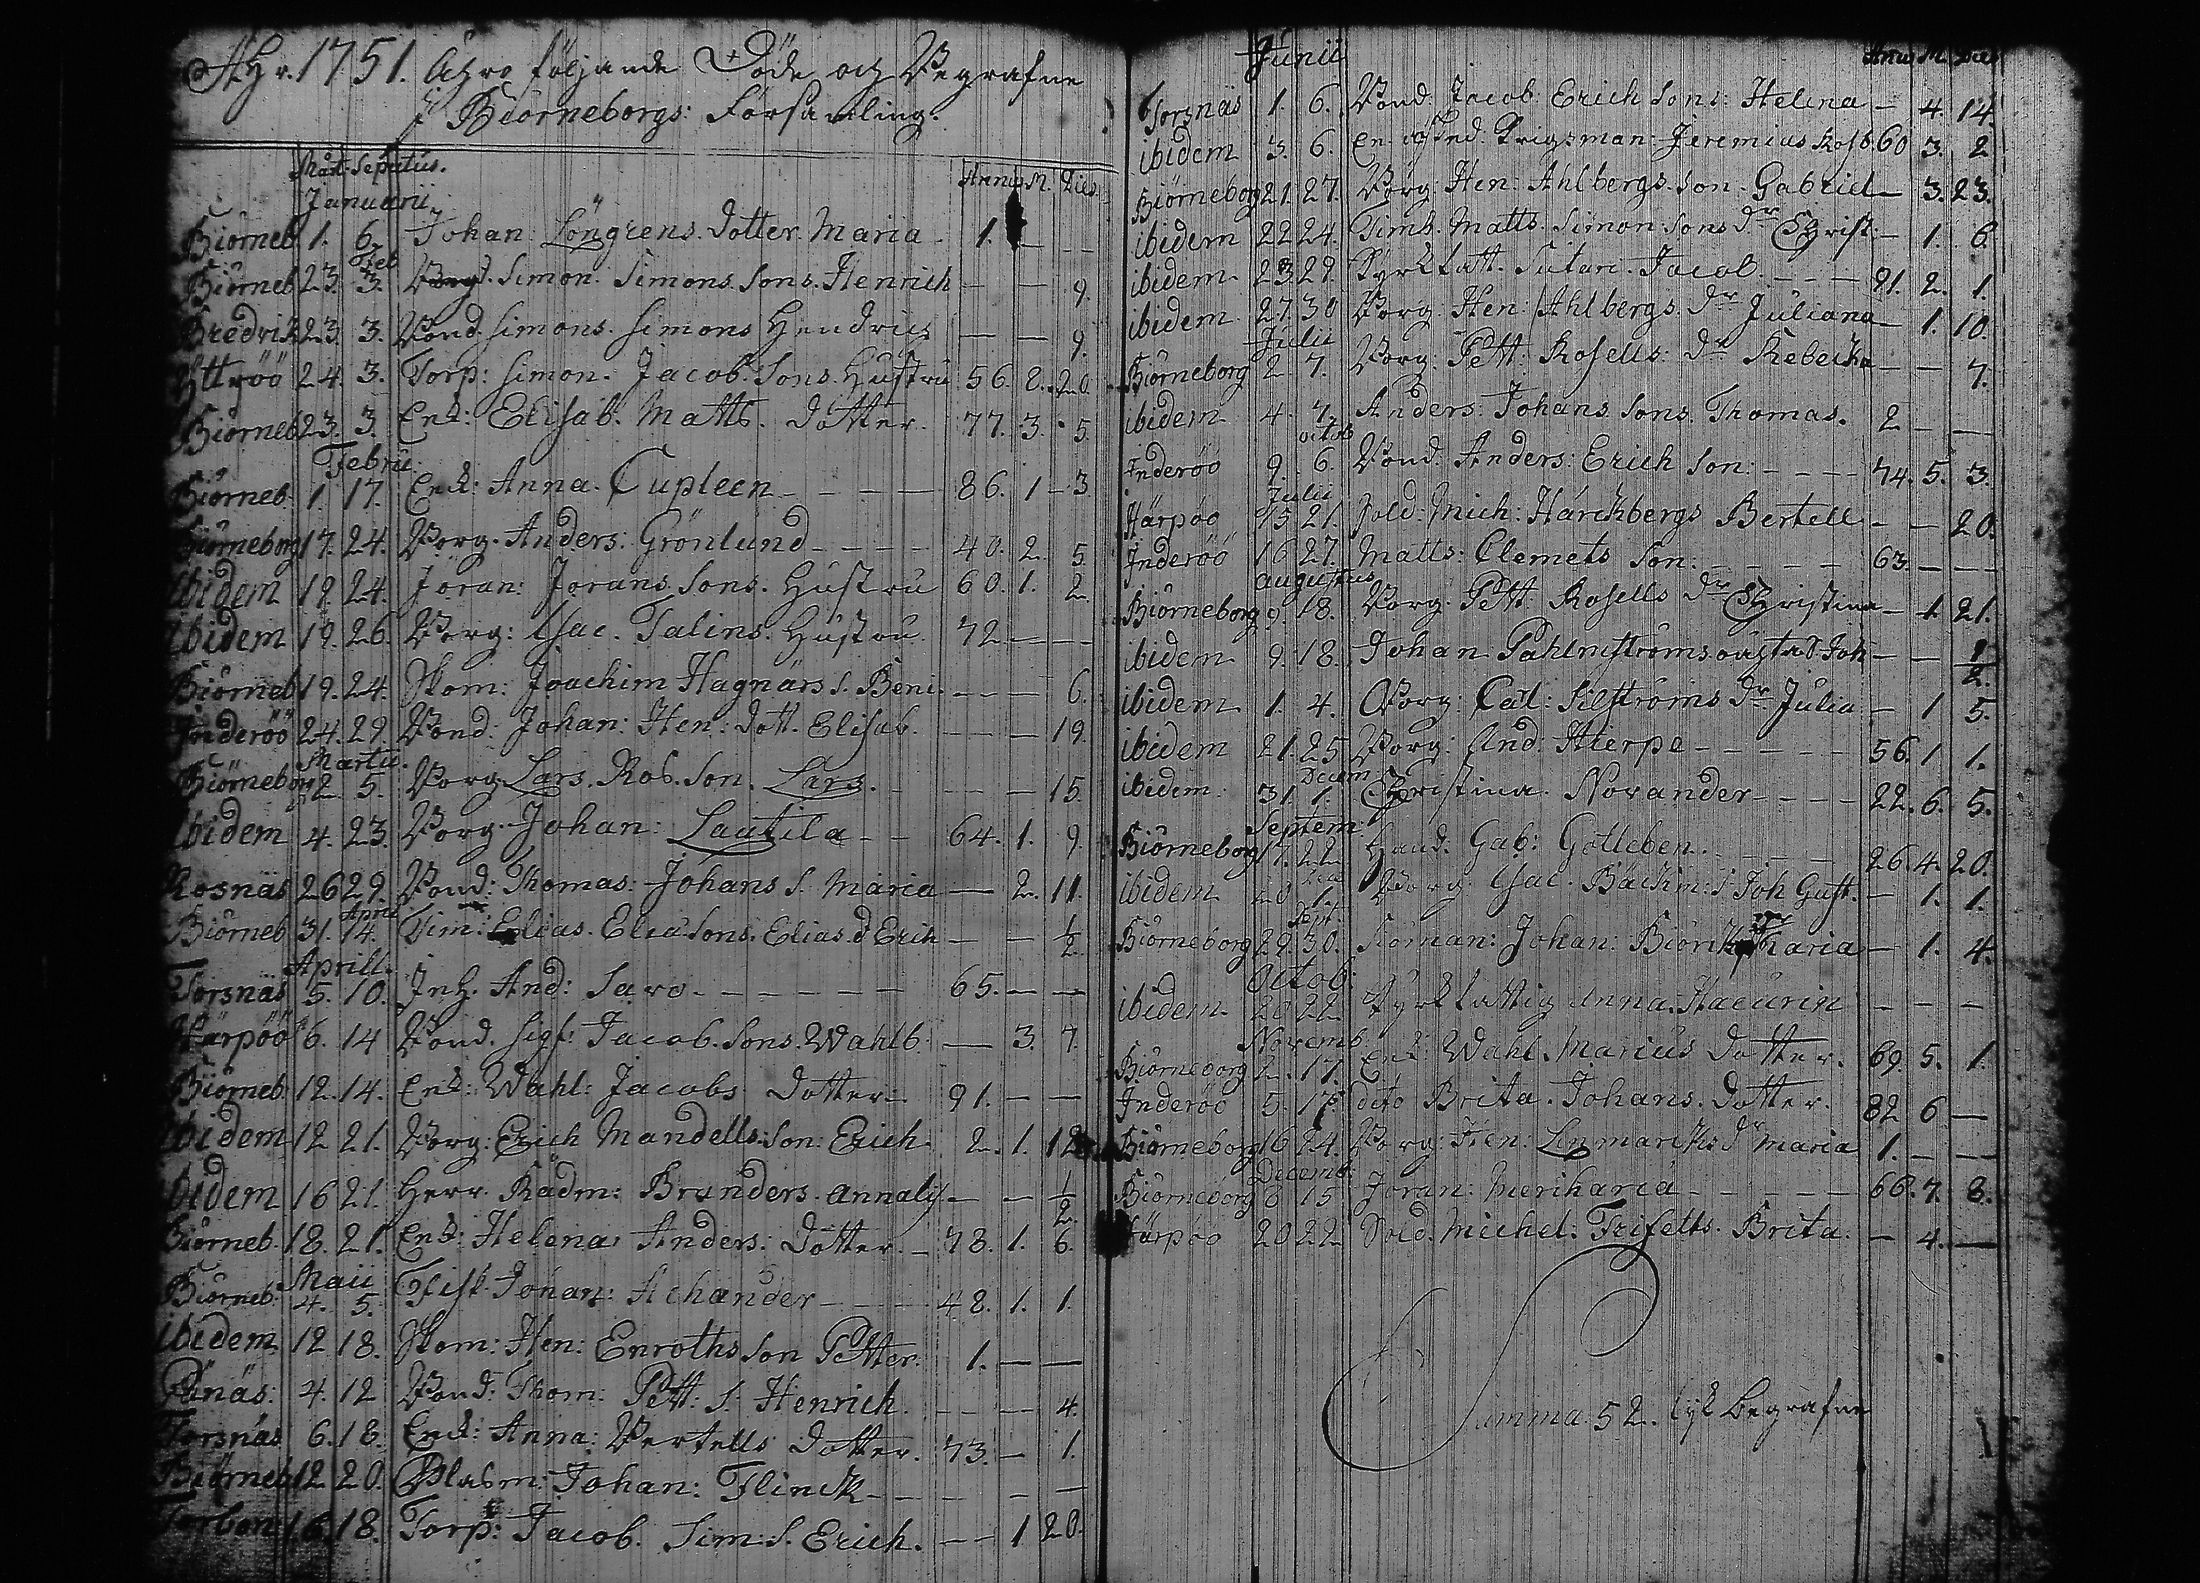 Åhr. 1751. Ähro följande Döde och Begrafne
i Biörneborgs: Församling.
Mort. Sepultus. Annus M. Dies
Januarii
Biörneb. 1. 6. Johan Löngrens dotter Maria 1. — —
Feb
Biörneb 23. 3. Borg. Simon Simons Sons Henrich — — 9.
Bredvik 23. 3. Bond. Simons Simons Hendric — — 9.
Yttröö 24. 3. Torp: Simon Jacob Sons Hustru 56. 8. 20.
Biörneb 23. 3. Enk: Elisab. Matts dotter. 77. 3. 5.
Febru:
Biörneb. 1. 17. Enk: Anna Cupleen 86. 1 - 3
Biörneborg 17. 24. Borg. Anders Grönlund 40. 2. 5
ibidem 19. 24. Jöran: Jörans Sons Hustru 60. 1. 2.
ibidem 19. 26. Borg: Isac Talins Hustru 72. — —
Biörneb 19. 24. Skom: Joachim Hagnärs S. Beni. — — 6.
Inderöö 24. 29. Bond: Johan: Hen: dott. Elisab. — — 19.
Martii.
Biörneborg 2 5. Borg Lars. Ros. Son. Lars. — — 15.
ibidem 4. 23. Borg. Johan: Lautila 64. 1. 9.
Rosnäs 26 29. Bond: Thomas: Johans S. Maria — 2. 11.
April
Biörneb 31. 14. Tim: Elias. Elia Sons. Elias d Erich — — 1/2
Aprill.
Torsnäs 5. 10. Inh. And: Saxo 65. — —
Härpöö 6. 14 Bond. Sigf: Jacob. Sons. Wahlb. — 3. 7.
Biörneb 12. 14. Enk: Wahl: Jacobs dotter: 91. — —
ibidem 12 21. Borg: Erich Mandells: Son: Erich. 2. 1. 12
ibidem 16 21. Herr Rådm: Brunders Annalis — — 1/2
Biörneb. 18. 21. Enk: Helena Anders: dotter. 78. 1. 6.
Maii
Biörneb: 4. 5. Fisk. Johan: Achander 48. 1. 1.
ibidem 12 18. Skom: Hen: Enroths Son Petter 1. — —
Pänäs: 4. 12 Bond: Thom: Pett: S. Henrich. — — 4.
Torsnäs 6. 18. Enk: Anna: Bertells dotter. 73. — 1.
Biörneb 12 20. Glasm: Johan: Flinck — — —
16. 18. Torp: Jacob. Sim: S. Erich. — 1 20.
Junii Annus M. Dies
Torsnäs 1. 6. Bond. Jacob Erich Sons: Helena — 4. 14.
ibidem 3. 6. En Krigsman Jeremias Rosb. 60 3. 2
Biörneborg 21. 27. Borg: Hen: Ahlbergs Son Gabriel — 3. 23.
ibidem 22 24. Timb. Matts. Simon Sons dr Christ: — 1. 6.
ibidem. 23 29. Kyrkfatt. Jacob. 81. 2. 1.
ibidem. 27. 30 Borg. Hen: Ahlbergs dr Juliana — 1. 10.
Julii
Biörneborg 2 7. Borg: Pett: Rosells: dr Rebecka — — 7.
ibidem 4. 7. Anders: Johans Sons Thomas. 2 — —
octob
Inderöö 9. 6. Bond: Anders: Erich Son: 74. 5. 3.
Julii
Härpöö 15 21. Sold: Mich: Härckbergs Bertell — — 20.
Inderöö 16 27. Matts: Clemets Son: 63 — —
augustus
Biörneborg 9. 18. Borg: Pett: Rosells dr Christina — 1. 21.
ibidem 9. 18. Johan Pahlmströms Joh — — 1/2.
ibidem 1. 4. Borg: Carl: Silfströms dr Julia — 1 5.
ibidem 21. 25 Borg: And: Hierpe 56. 1 1.
Decem
ibidem 31. 1. Christina Norander 22. 6. 5.
Septem:
Biörneborg 17. 22 Hand. Gab: Gotleben. 26. 4. 20.
ibidem 20 1. Borg. Isac. Bäckm: S Joh Gust. — 1. 1.
Sept.
Biörneborg 29. 30. Johan: Biörck Maria — 1. 4.
Octob:
ibidem. 20 22 Kyrkfattig Anna — — —
Novemb
Biörneborg 2. 17. Enk: Wahl. Marcus dotter. 69. 5. 1.
Inderöö 5. 17. dito Brita. Johans. dotter. 82 6 —
Biörneborg 16 24. Borg: Hen: Lenmarcks dr Maria 1. — —
Decemb:
Biörneborg 8 15 Jöran: Merikaria 66. 7. 8.
Härpöö 20 22 Sold. Michel: Friskells. Brita. — 4. —
Summa 52. lyk begrafne